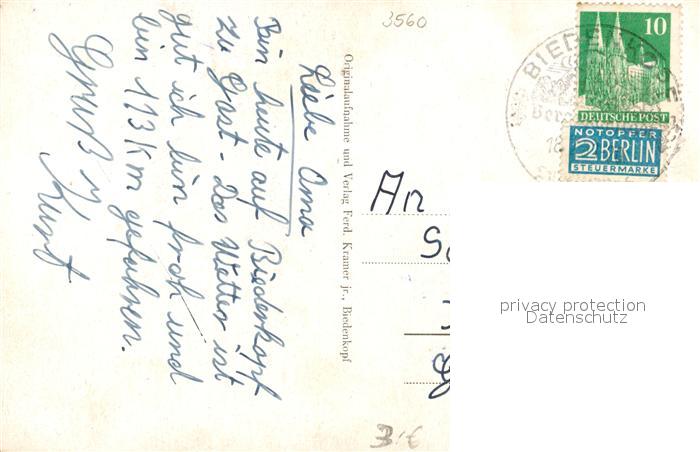 3560
Liebe Oma
Bin heute auf Biedenkopf
zu Gast - Das Wetter ist
gut ich bin froh und
bin 113 Km gefahren.
Gruß v
Kurt
Originalaufnahme und Verlag Ferd. Kramer jr., Biedenkopf
10
DEUTSCHE POST
NOTOPFER
2 BERLIN
STEUERMARKE
BIEDENKOPF
18
An
privacy protection
Datenschutz
3.€